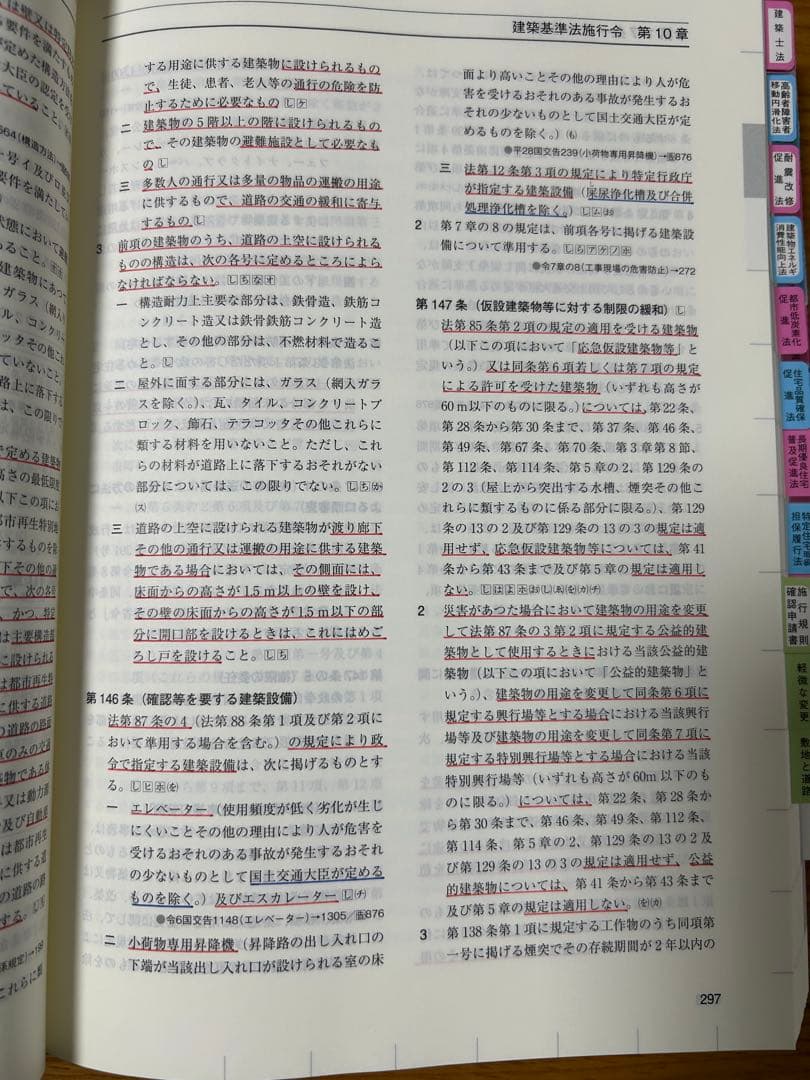 建築基準法施行令 第10章
する用途に供する建築物に設けられるもの
で、生徒、患者、老人等の通行の危険を防
止するために必要なもの
二 建築物の5階以上の階に設けられるもの
で、その建築物の避難施設として必要なも
の
三 多数人の通行又は多量の物品の運搬の用途
に供するもので、道路の交通の緩和に寄与
するもの
3 前項の建築物のうち、道路の上空に設けられる
ものの構造は、次の各号に定めるところによら
なければならない。
一 構造耐力上主要な部分は、鉄骨造、鉄筋コ
ンクリート造又は鉄骨鉄筋コンクリート造
とし、その他の部分は、不燃材料で造るこ
と。
二 屋外に面する部分には、ガラス(網入ガラ
スを除く。)、瓦、タイル、コンクリートブ
ロック、飾石、テラコッタその他これらに
類する材料を用いないこと。ただし、これ
らの材料が道路上に落下するおそれがない
部分については、この限りでない。
三 道路の上空に設けられる建築物が渡り廊下
その他の通行又は運搬の用途に供する建築
物である場合においては、その側面には、
床面からの高さが1.5m以上の壁を設け、
その壁の床面からの高さが1.5m以下の部
分に開口部を設けるときは、これにはめご
ろし戸を設けること。
第146条(確認等を要する建築設備)
法第87条の4(法第88条第1項及び第2項に
おいて準用する場合を含む。)の規定により政
令で指定する建築設備は、次に掲げるものとす
る。
一 エレベーター(使用頻度が低く劣化が生じ
にくいことその他の理由により人が危害を
受けるおそれのある事故が発生するおそれ
の少ないものとして国土交通大臣が定める
ものを除く。)及びエスカレーター
●令6国交告1148(エレベーター)→1305/告876
二 小荷物専用昇降機(昇降路の出し入れ口の
下端が当該出し入れ口が設けられる室の床
面より高いことその他の理由により人が危
害を受けるおそれのある事故が発生するお
それの少ないものとして国土交通大臣が定
めるものを除く。)
●平28国交告239(小荷物専用昇降機)→告876
三 法第12条第3項の規定により特定行政庁
が指定する建築設備(屎尿浄化槽及び合併
処理浄化槽を除く。)
2 第7章の8の規定は、前項各号に掲げる建築設
備について準用する。
●令7章の8(工事現場の危害防止)→272
第147条(仮設建築物等に対する制限の緩和)
法第85条第2項の規定の適用を受ける建築物
(以下この項において「応急仮設建築物等」と
いう。)又は同条第6項若しくは第7項の規定
による許可を受けた建築物(いずれも高さが
60m以下のものに限る。)については、第22条、
第28条から第30条まで、第37条、第46条、
第49条、第67条、第70条、第3章第8節、
第112条、第114条、第5章の2、第129条の
2の3(屋上から突出する水槽、煙突その他こ
れらに類するものに係る部分に限る。)、第129
条の13の2及び第129条の13の3の規定は適
用せず、応急仮設建築物等については、第41
条から第43条まで及び第5章の規定は適用し
ない。
2 災害があつた場合において建築物の用途を変更
して法第87条の3第2項に規定する公益的建
築物として使用するときにおける当該公益的建
築物(以下この項において「公益的建築物」と
いう。)、建築物の用途を変更して同条第6項に
規定する興行場等とする場合における当該興行
場等及び建築物の用途を変更して同条第7項に
規定する特別興行場等とする場合における当該
特別興行場等(いずれも高さが60m以下のも
のに限る。)については、第22条、第28条か
ら第30条まで、第46条、第49条、第112条、
第114条、第5章の2、第129条の13の2及
び第129条の13の3の規定は適用せず、公益
的建築物については、第41条から第43条まで
及び第5章の規定は適用しない。
3 第138条第1項に規定する工作物のうち同項第
一号に掲げる煙突でその存続期間が2年以内の
297
建築士法
高齢者障害者
移動円滑化法
耐震改修
促進法
建築物エネルギー
消費性能向上法
都市低炭素化
促進法
住宅品質確保
促進法
長期優良住宅
普及促進法
特定住宅瑕疵
担保履行法
施行規則
確認申請書
軽微な変更 敷地と道路